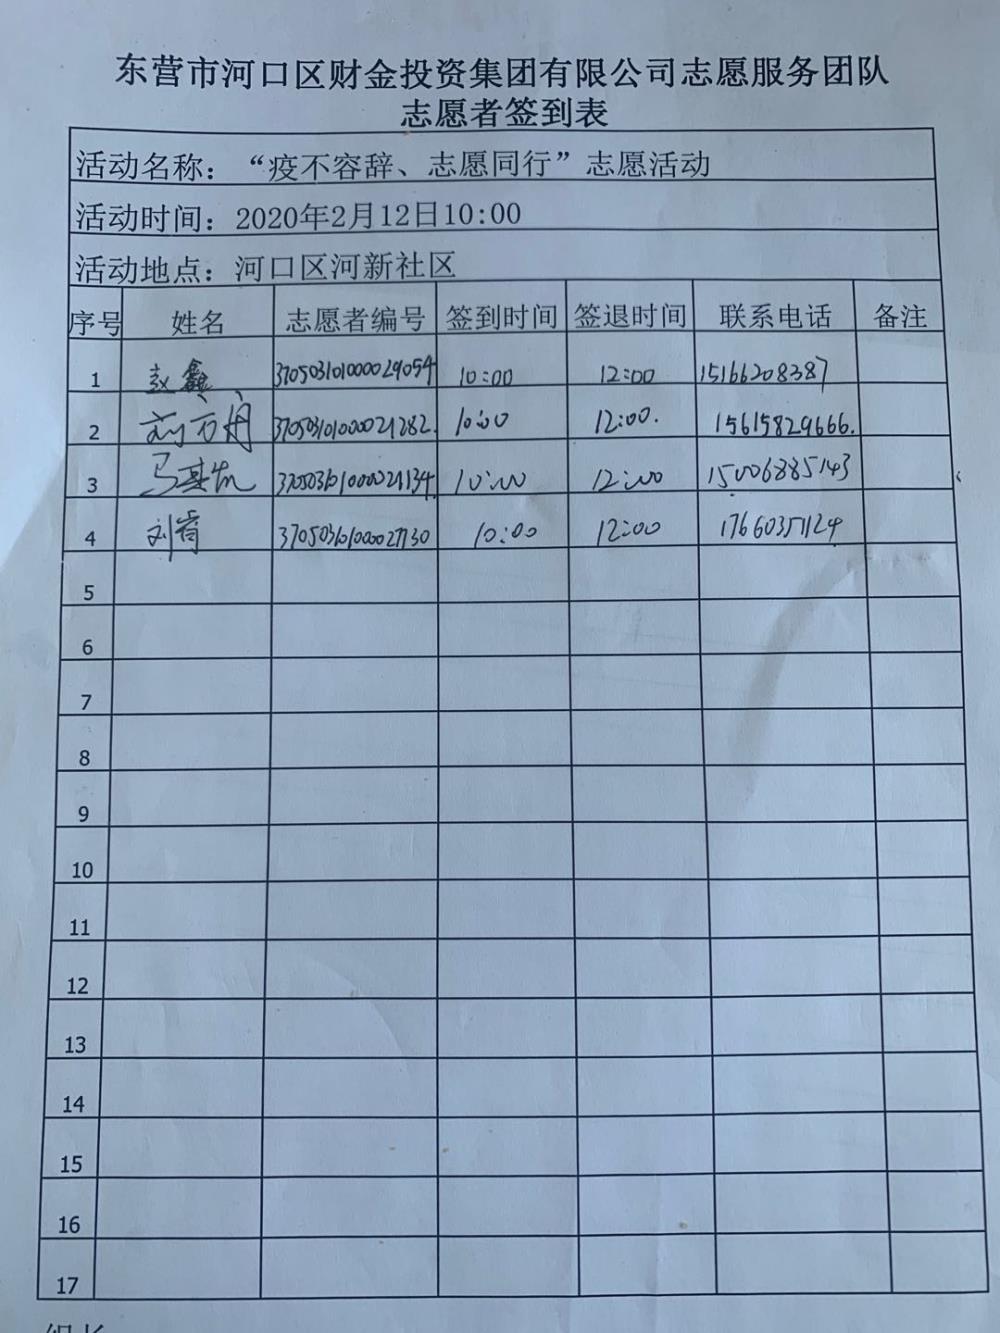 东营市河口区财金投资集团有限公司志愿服务团队
志愿者签到表
活动名称：“疫不容辞、志愿同行”志愿活动
活动时间：2020年2月12日10:00
活动地点：河口区河新社区
序号 姓名 志愿者编号 签到时间 签退时间 联系电话 备注
1 赵鑫 370503101000029054 10:00 12:00 15166208387
2 10:00 12:00. 15615829666.
3 10:00 12:00 15006885143
4 刘睿 10:00 12:00 17660351124
5
6
7
8
9
10
11
12
13
14
15
16
17